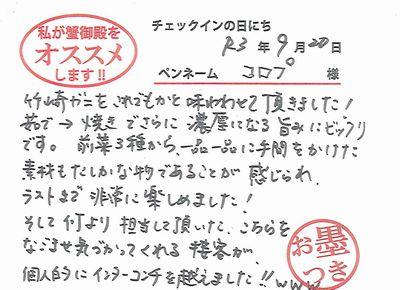 私が蟹御殿を
オススメ
します!!
チェックインの日にち
R3年9月20日
ペンネーム コロプ 様
竹崎ガニをこれでもかと味わわせて頂きました!
茹で→焼きでさらに濃厚になる旨みにビックリ
です。前菜3種から、一品一品に手間をかけた
素材もたしかな物であることが感じられ、
ラストまで非常に楽しめました!
そして何より担当して頂いた、こちらを
なごませ気づかってくれる接客が、
個人的にインターコンチを越えました!!www
お墨
つき